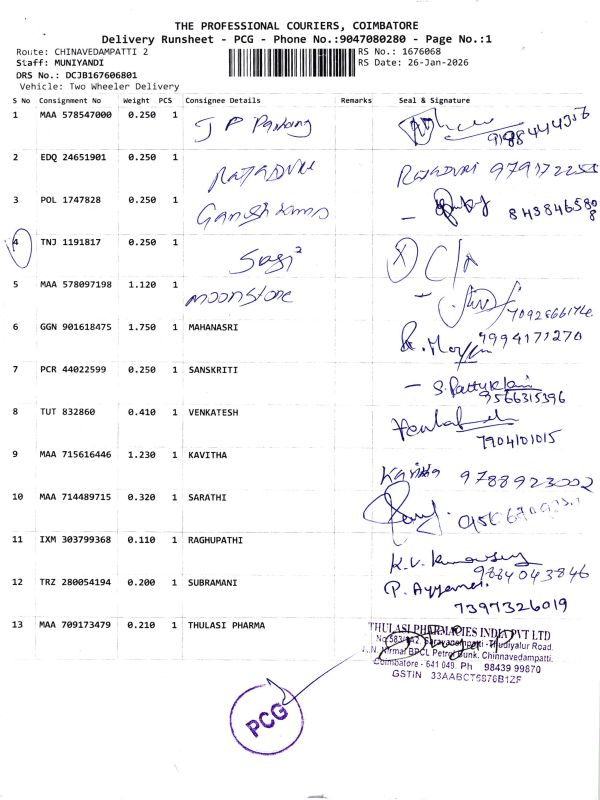 THE PROFESSIONAL COURIERS, COIMBATORE
Delivery Runsheet - PCG - Phone No.:9047080280 - Page No.:1
Route: CHINAVEDAMPATTI 2 RS No.: 1676068
Staff: MUNIYANDI RS Date: 26-Jan-2026
DRS No.: DCJB167606801
Vehicle: Two Wheeler Delivery
S No Consignment No Weight PCS Consignee Details Remarks Seal & Signature
1 MAA 578547000 0.250 1
2 EDQ 24651901 0.250 1 RAJADURI RAJADURI
3 POL 1747828 0.250 1
4 TNJ 1191817 0.250 1 C/A
5 MAA 578097198 1.120 1 moonstone
6 GGN 901618475 1.750 1 MAHANASRI 7994171270
7 PCR 44022599 0.250 1 SANSKRITI
9566315396
8 TUT 832860 0.410 1 VENKATESH
7904101015
9 MAA 715616446 1.230 1 KAVITHA
Kavitha 9788923002
10 MAA 714489715 0.320 1 SARATHI
11 IXM 303799368 0.110 1 RAGHUPATHI
9884043846
12 TRZ 280054194 0.200 1 SUBRAMANI
7397326019
13 MAA 709173479 0.210 1 THULASI PHARMA
THULASI PHARMACIES INDIA PVT LTD
Saravanampatti - Thudiyalur Road.
Nirmal BPCL Petrol Bunk. Chinnavedampatti.
Coimbatore - 641 049. Ph 98439 99870
GSTIN
PCG